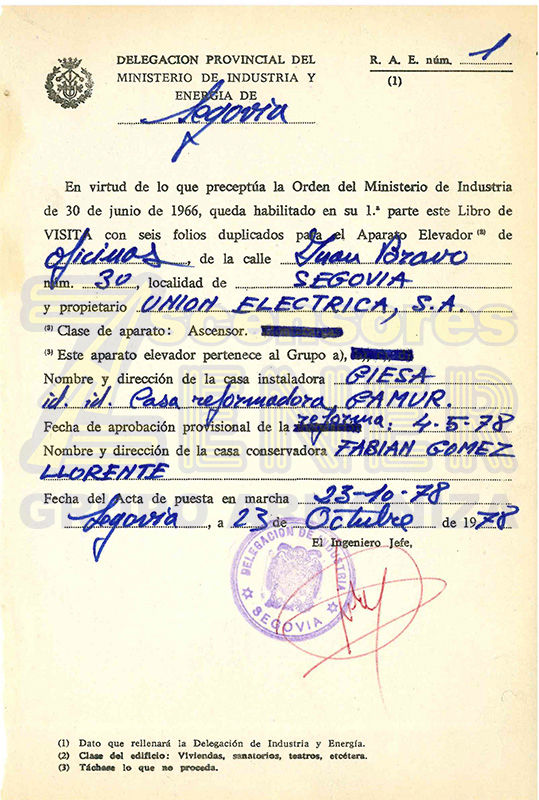 DELEGACION PROVINCIAL DEL
MINISTERIO DE INDUSTRIA Y
ENERGIA DE
Segovia
R. A. E. núm. 1
(1)
En virtud de lo que preceptúa la Orden del Ministerio de Industria
de 30 de junio de 1966, queda habilitado en su 1.ª parte este Libro de
VISITA con seis folios duplicados para el Aparato Elevador (2) de
oficinas, de la calle Juan Bravo
núm. 30, localidad de SEGOVIA
y propietario UNION ELECTRICA, S.A.
(3) Clase de aparato: Ascensor.
(3) Este aparato elevador pertenece al Grupo a),
Nombre y dirección de la casa instaladora GIESA
id. id. Casa reformadora CAMUR.
Fecha de aprobación provisional de la reforma: 4-5-78
Nombre y dirección de la casa conservadora FABIAN GOMEZ
LLORENTE
Fecha del Acta de puesta en marcha 23-10-78
Segovia, a 23 de Octubre de 1978
El Ingeniero Jefe,
DELEGACIÓN DE INDUSTRIA
SEGOVIA
(1) Dato que rellenará la Delegación de Industria y Energía.
(2) Clase del edificio: Viviendas, sanatorios, teatros, etcétera.
(3) Táchese lo que no proceda.